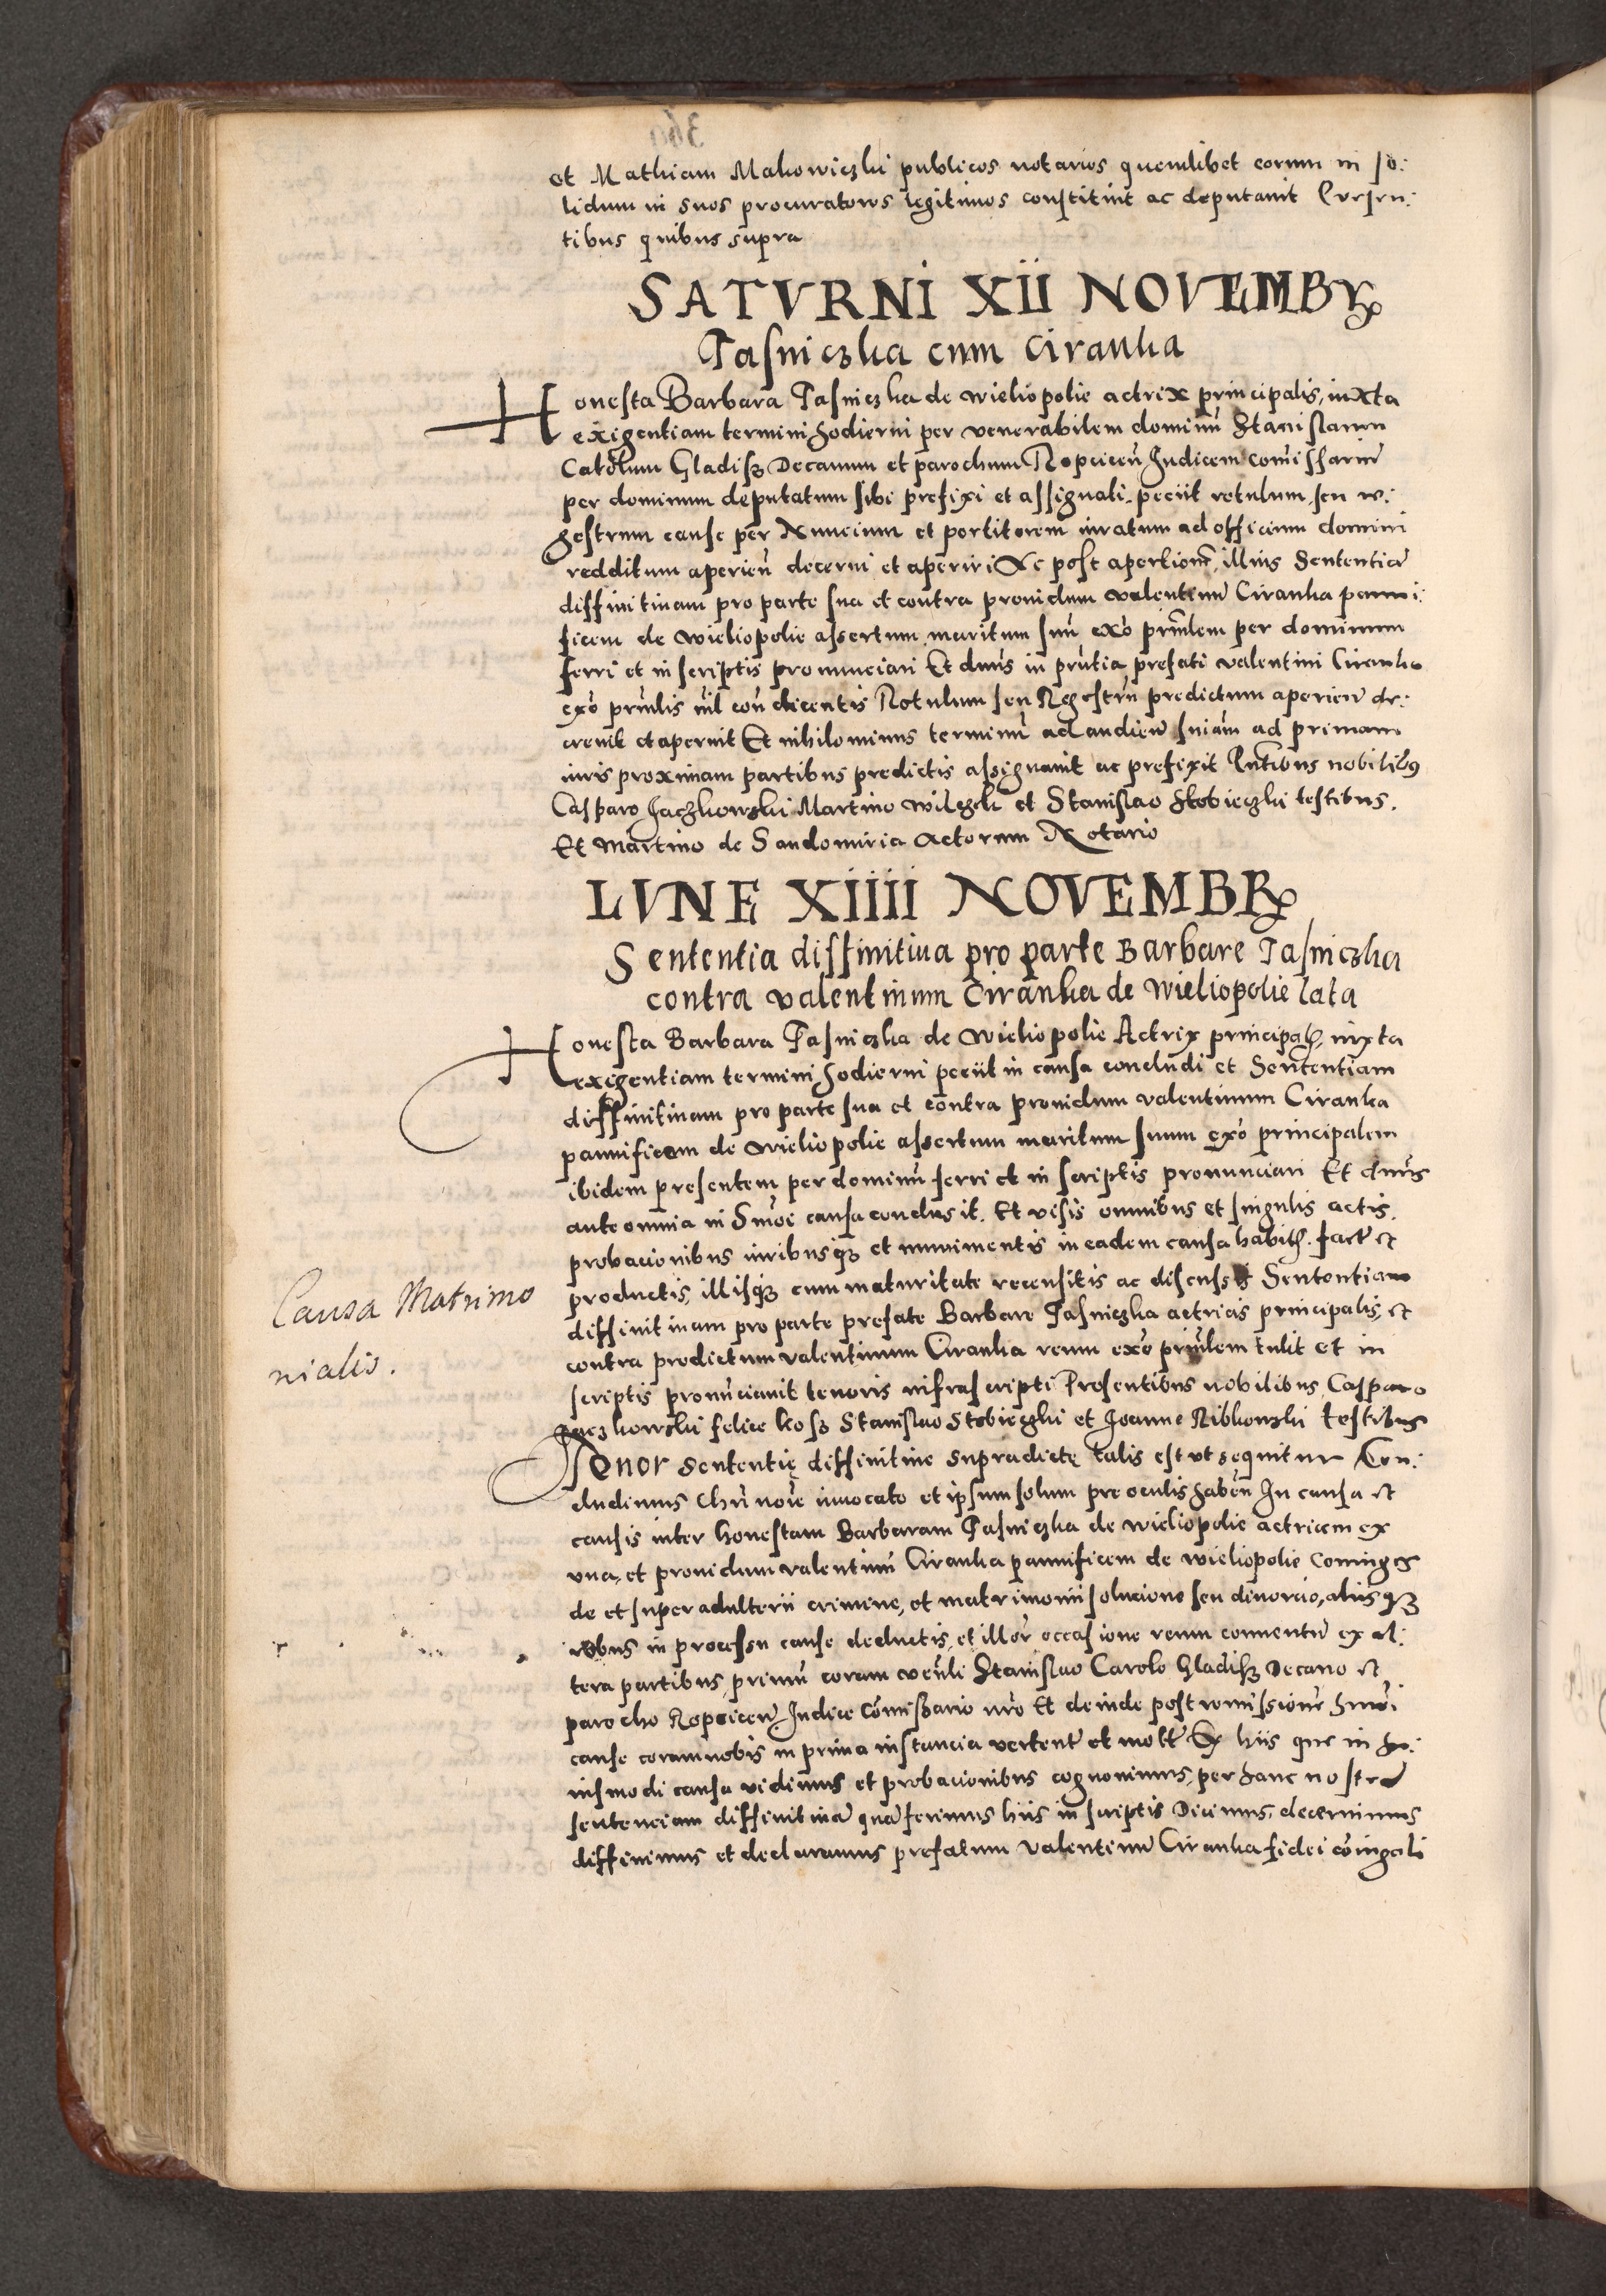 et Mathiam Makowiczki publicos notarios quemlibet eorum in so:
lidum in suos procuratores legitimos constituit ac deputauit Presen:
tibus quibus supra
SATVRNI XII NOVEMBR
Jasniczka cum Ciranka
Honesta Barbara Jasniczka de Wieliopolie actrix principalis, iuxta
exigentiam termini hodierni per venerabilem dominū Stanislaum
Carolum Gladisz Decanum et parochum Ropciceñ Judicem comissariū
per dominum deputatum sibi prefixi et assignati. peciit rotulum seu re:
gestrum cause per Nuncium et portitorem iuratum ad officium domini
redditum aperieñ decerni et aperiri Ac post apertionē illius Sententiā
diffinitiuam pro parte sua et contra prouidum valentinū Ciranka panni:
ficem de Wieliopolie assertum maritum suū exō prīnlem per dominum
ferri et in scriptis pronunciari Et dnūs in prñtia prefati valentini Ciranka
exō prīnlis nīl coñ dicentis Rotulum seu Regestrū predictum aperieñ de:
creuit et aperuit Et nihilominus terminū ad audieñ sniām ad primam
iuris proximam partibus predictis assignauit ac prefixit Pñtibus nobilibus
Casparo Jaczkowski Martino Wilczek et Stanislao Stobieczki testibus.
Et Martino de Sandomiria Actorum Notario
LVNE XIIII NOVEMBR
Sententia diffinitiua pro parte Barbare Jasniczka
contra valentinum Ciranka de Wieliopolie lata
Honesta Barbara Jasniczka de Wieliopolie Actrix principalis, iuxta
exigentiam termini hodierni peciit in causa concludi et Sententiam
diffinitiuam pro parte sua et contra prouidum valentinum Ciranka
pannificem de Wieliopolie assertum maritum suum exō principalem
ibidem presentem per dominū ferri et in scriptis pronunciari Et dnūs
ante omnia in hmōi causa conclusit. Et visis omnibus et singulis actis.
probacionibus iuribusque et munimentis in eadem causa habitis. fact et
productis, illisque cum maturitate recensitis ac discussis Sententiam
diffinitiuam pro parte prefate Barbare Jasniczka actricis principalis, et
contra predictum valentinum Ciranka reum exō prīnlem tulit et in
scriptis pronūciauit tenoris infrascripti Presentibus nobilibus Casparo
Jaczkowski felice Kosz Stanislao Stobieczki et Joanne Ribkowski testibus
Tenor sententię diffinitiue supradictę talis est vt sequitur Con:
cludimus Chrī noīe inuocato et ipsum solum pre oculis habeñ In causa et
causis inter honestam Barbaram Jasniczka de Wieliopolie actricem ex
vna, et prouidum valentinū Ciranka pannificem de Wieliopolie Coniuges
de et super adulterii crimine, et matrimonii solucione seu diuorcio, aliisque
rebus in processu cause deductis, et illor occasione reum conuentū ex al:
tera partibus, primū coram veñli Stanislao Carolo Gladisz Decano et
parocho Ropciceñ Judice Comissario nrō Et deinde post remissionē hmōi
cause coram nobis in prima instancia verteñ et Ex hiis que in hu:
iusmodi causa vidimus et probacionibus cognouimus, per hanc nostrā
sentenciam diffinitiuā quā ferimus hiis in scriptis Dicimus, decernimus
diffinimus et declaramus prefatum valentinū Ciranka fidei cōiugali
Causa Matrimo
nialis.